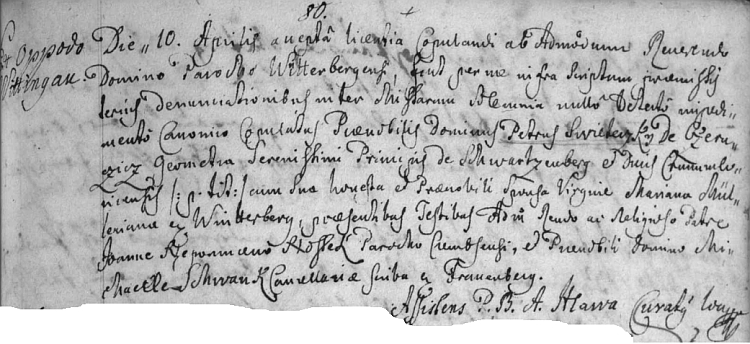 80.
Ex Oppodo
Wittingau.
Die 10. Aprilis accepta licentia Copulandi ab Admodum Reverendo
Domino Parocho Winterbergensi, sunt per me infra scriptum praemissis
denunciationibus inter Missarum Solemnia nullo detecto impedi-
mento Canonico Copulatus Praenobilis Dominus Petrus de Czeru-
Geometra Serenissimi Principis de Schwartzenberg et Ducis Crummlo-
viensis /: p: tit: / cum sua honesta et Praenobili sponsa Virgine Mariana Mül-
leriana ex Winterberg, praesentibus Testibus Adm Rendo ac Religioso Patre
Joanne Nepomuceno Parocho et Praenobili Domino Mi-
chaele Schwank Cancellariae scriba ex Frauenberg.
Assistens P. B. A. Hlawa